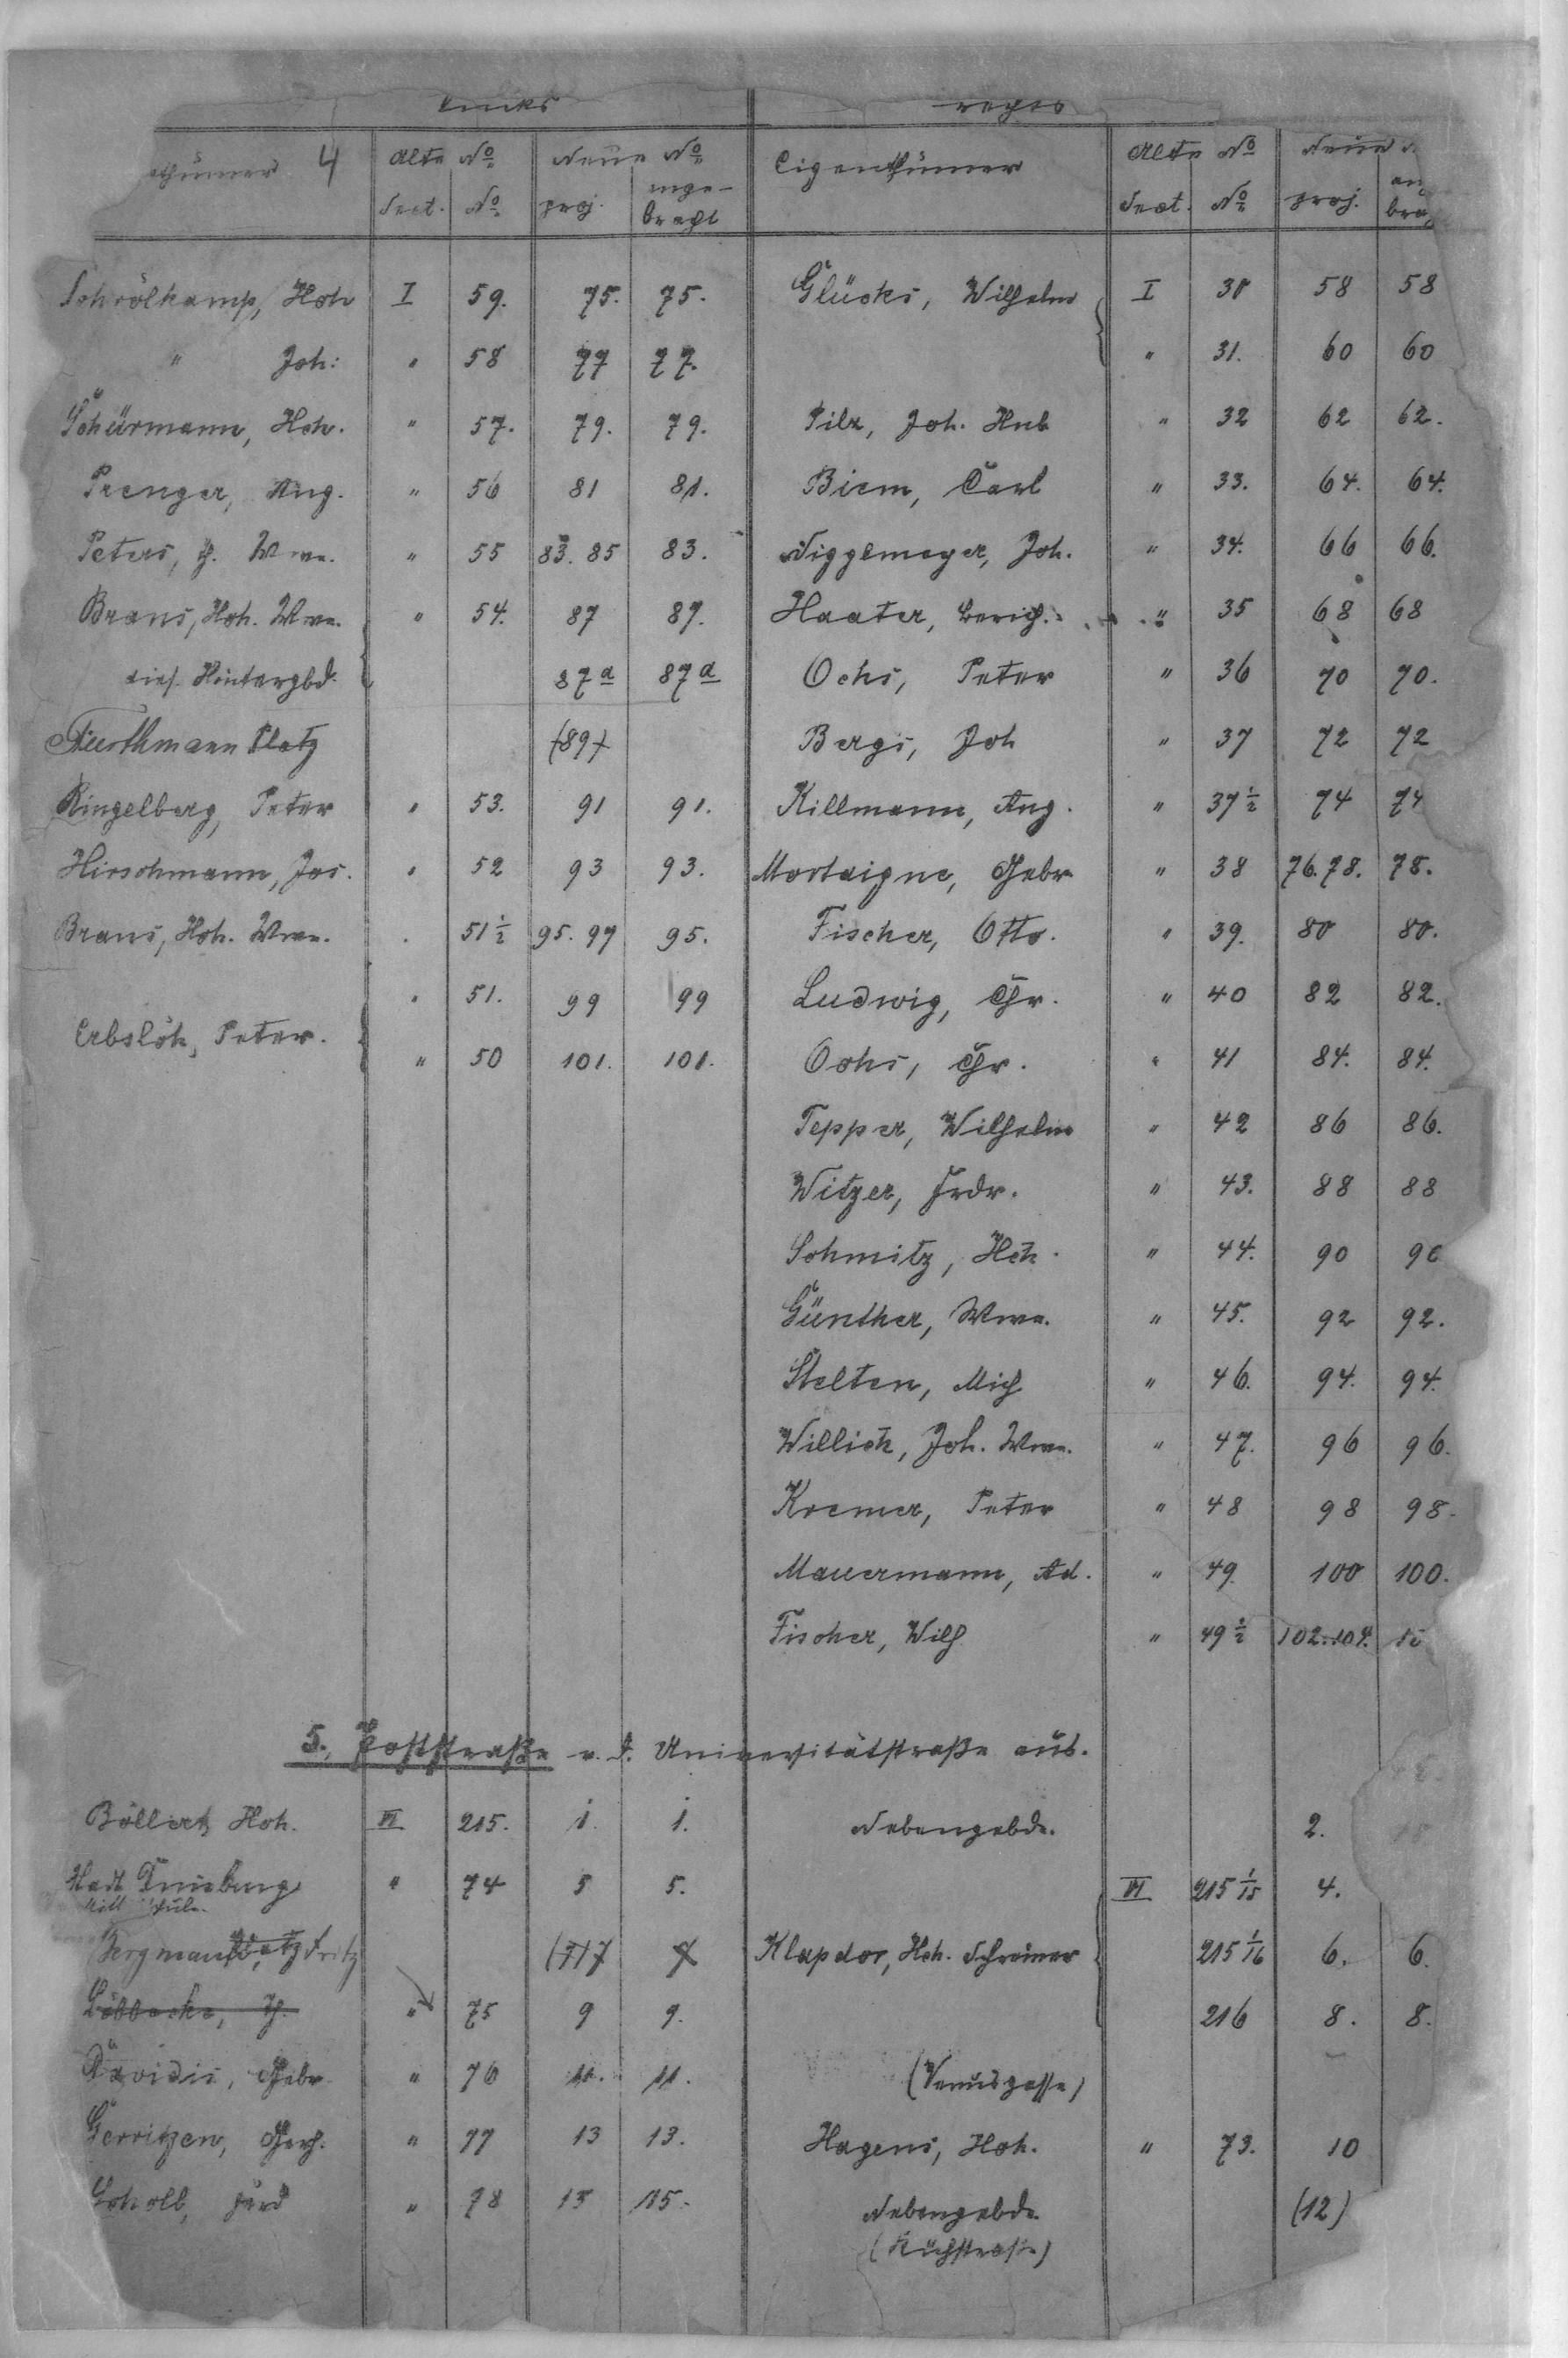 links rechts
4 Alte No Neue No Eigenthümer Alte No Neue
Sect. No proj. ange- Sect. No proj. an
bracht bra
Schrölkamp, Hch I 59. 75. 75. Glücks, Wilhelm I 30 58 58
" Joh: " 58 77 77. " 31. 60 60
Schürmann, Hch. " 57. 79. 79. Pilz, Joh. Hub " 32 62 62.
Prenger, Aug. " 56 81 81. Biem, Carl " 33. 64. 64.
Peters, H. Wwe. " 55 83. 85 83. Niggemeyer, Joh. " 34. 66 66.
Brans, Hch. Wwe. " 54. 87 87. Haater, " 35 68 68
Hintergbd. 87a 87a Ochs, Peter " 36 70 70.
Platz (89) Bergs, Joh " 37 72 72
Ringelberg, Peter " 53. 91 91. Killmann, Aug. " 37½ 74 74
Hirschmann, Jos. " 52 93 93. Mortaigne, Gebr " 38 76. 78. 78.
Brans, Hch. Wwe. " 51½ 95. 97 95. Fischer, Otto. " 39. 80 80.
" 51. 99 99 Ludwig, Chr. " 40 82 82.
Erbslöh, Peter. " 50 101. 101. Ochs, Chr. " 41 84. 84.
Tepper, Wilhelm " 42 86 86.
Witzer, Frdr. " 43. 88 88
Schmitz, Hch. " 44. 90 90
Günther, Wwe. " 45. 92 92.
Stelten, Mich " 46. 94. 94.
Willich, Joh. Wwe. " 47. 96 96.
Kremer, Peter " 48 98 98.
Mauermann, Ad. " 49. 100 100.
Fischer, Wilh " 49½ 102. 104.
5. Poststraße v. d. Universitätstraße aus.
Böllert, Hch. VI 215. 1. 1. Nebengebde. 2.
Stadt Duisburg " 74 5 5. VI 215 1/15 4.
Bergmann Fritz 7 Klapdor, Hch. Schreiner 215 1/16 6. 6.
Löbbecke, H. " 75 9 9. 216 8. 8.
Davidis, Gebr. " 76 11. 11. (Venusgasse)
Gerritzen, Gerh. " 77 13 13. Hagens, Hch. " 73. 10
Scholl, Ferd " 78 15 15. Nebengebde. (12)
(Kuhstraße)